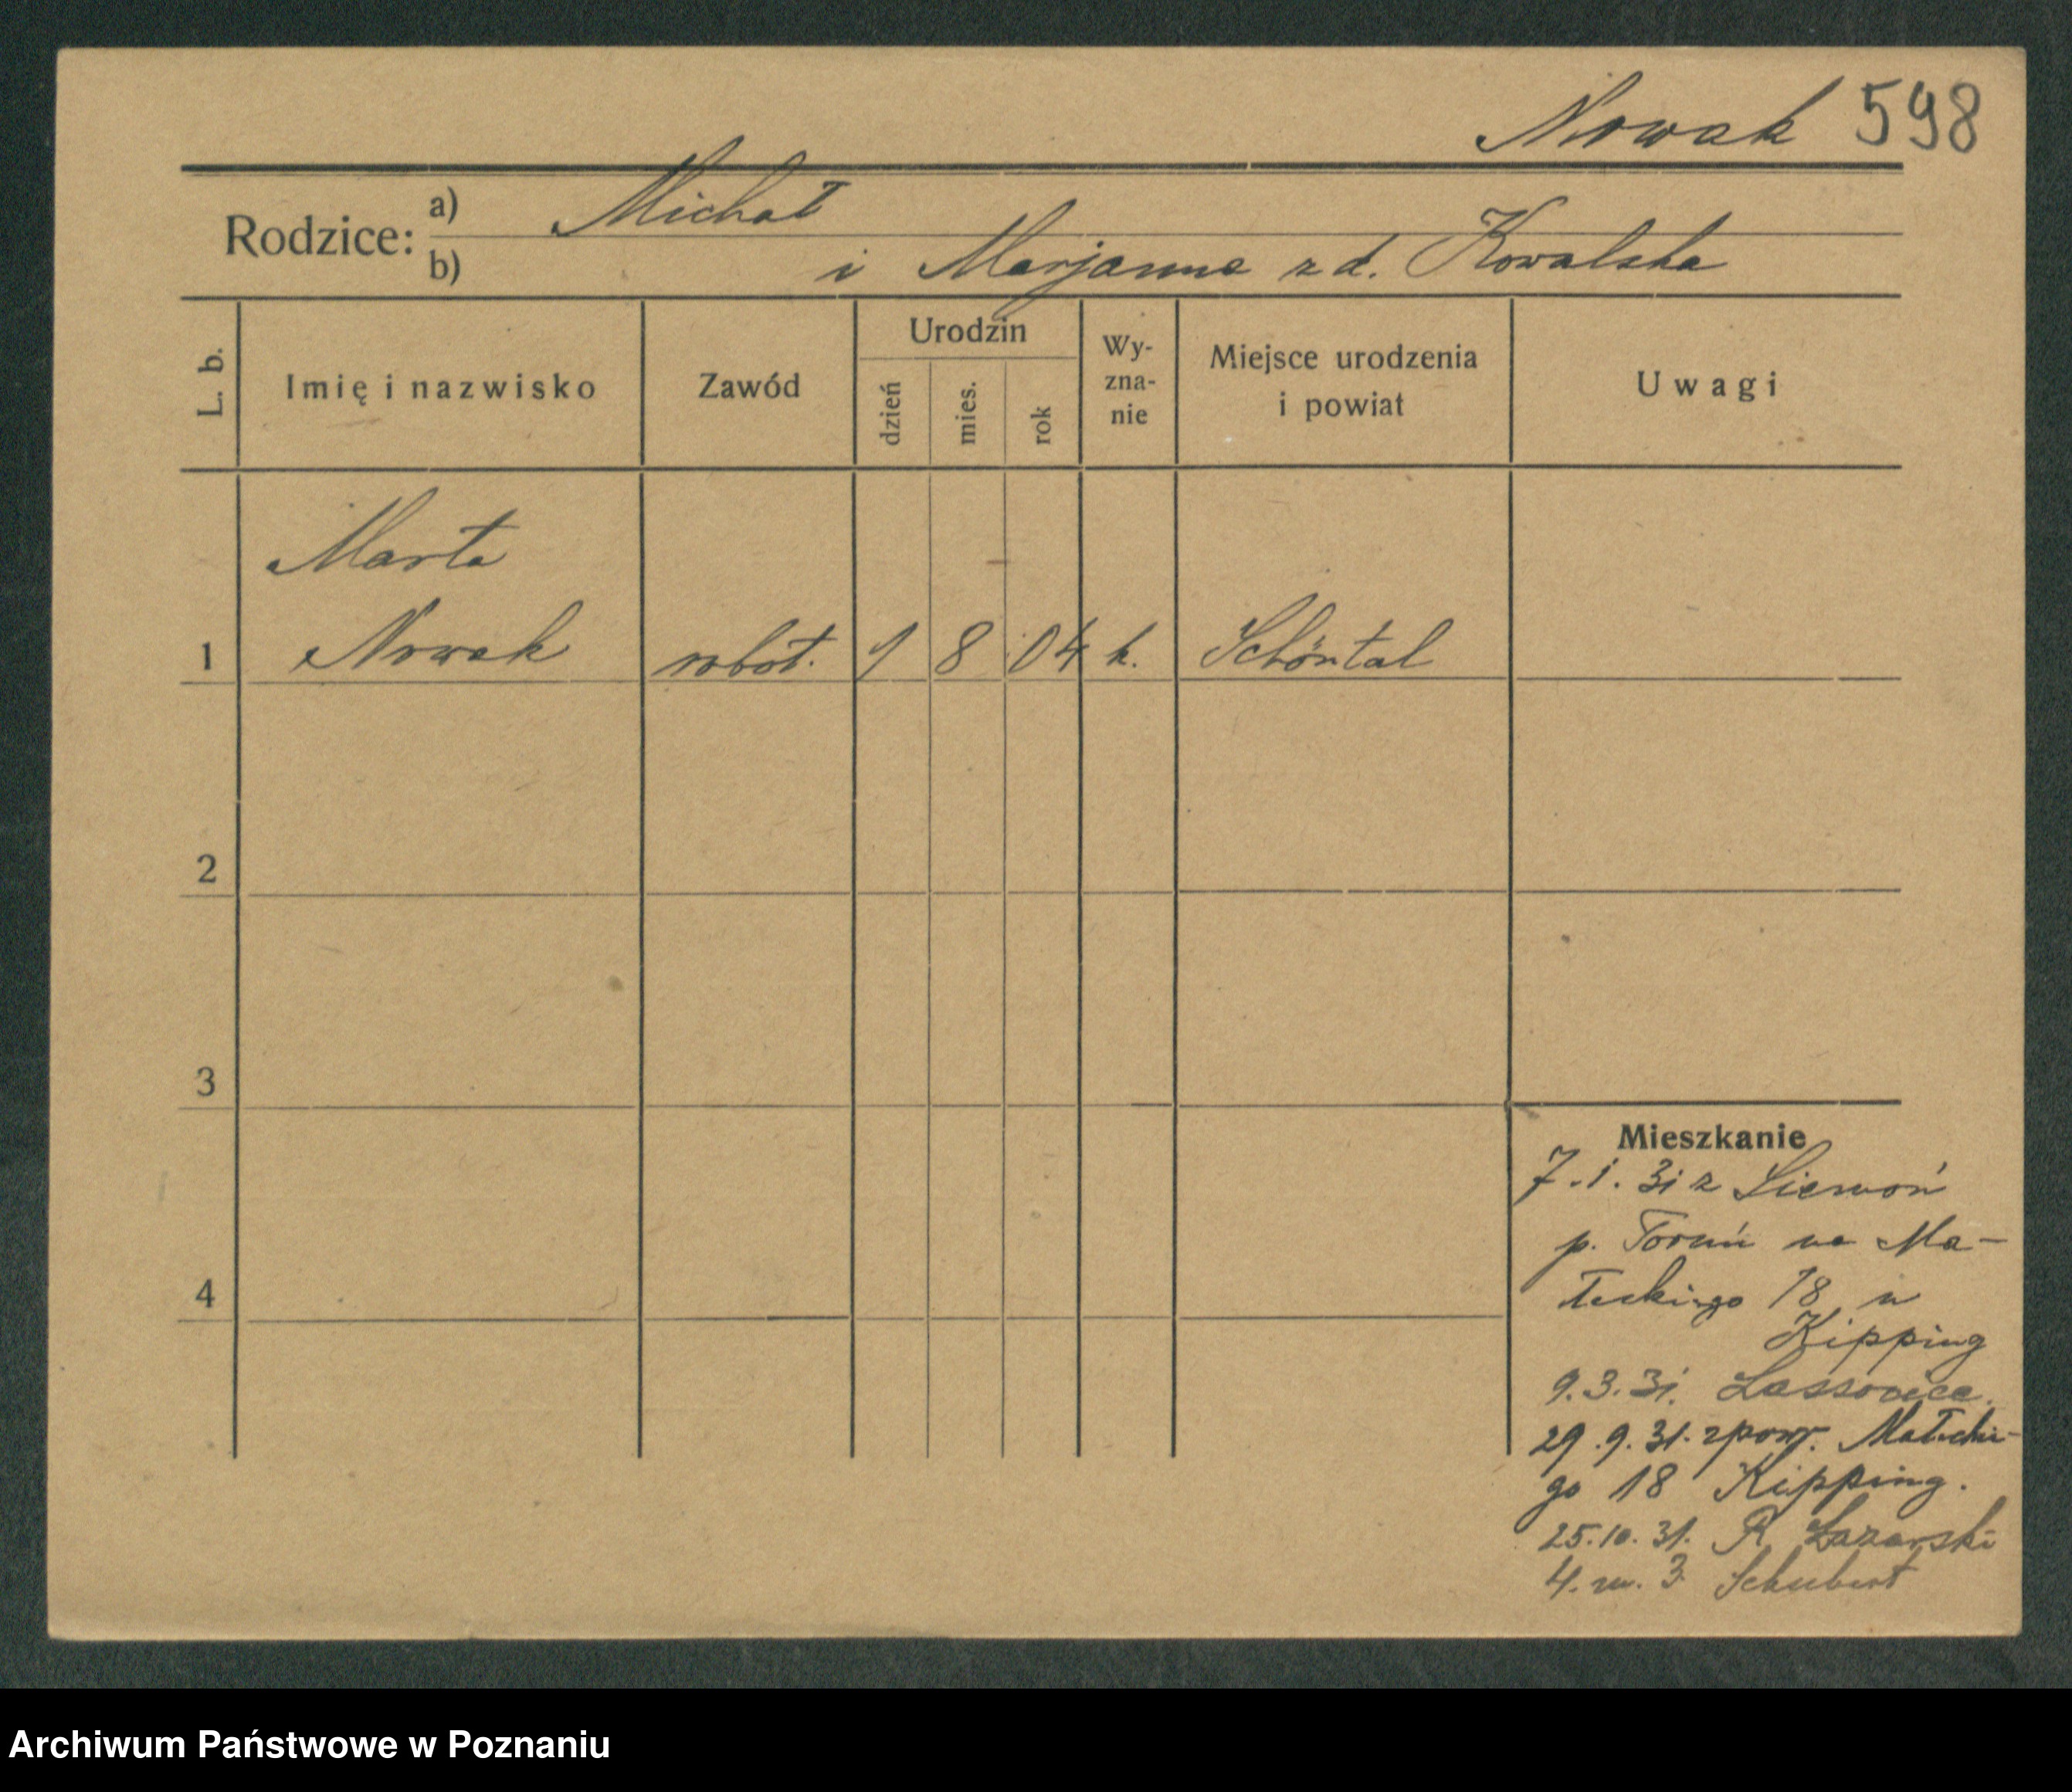 Nowak 598
Rodzice: a) Michał
b) i Marjanna z d. Kowalska
L. b. Imię i nazwisko Zawód Urodzin dzień mies. rok Wy-zna-nie Miejsce urodzenia i powiat Uwagi
Marta
1 Nowak robot. 1 8 04 k. Schöntal
2
3
Mieszkanie
7.1.31 z Siemoń
p. Toruń na Ma-
4
łeckiego 18 u
Kipping
9.3.31.
29.9.31. zpow. Małecki-
go 18 Kipping.
25.10.31. R Łazarski
4. m. 3 Schubert
Archiwum Państwowe w Poznaniu